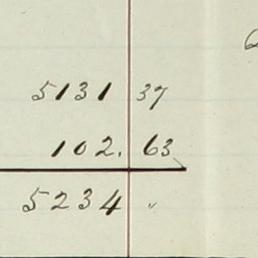 5131 37
102. 63
5234 "